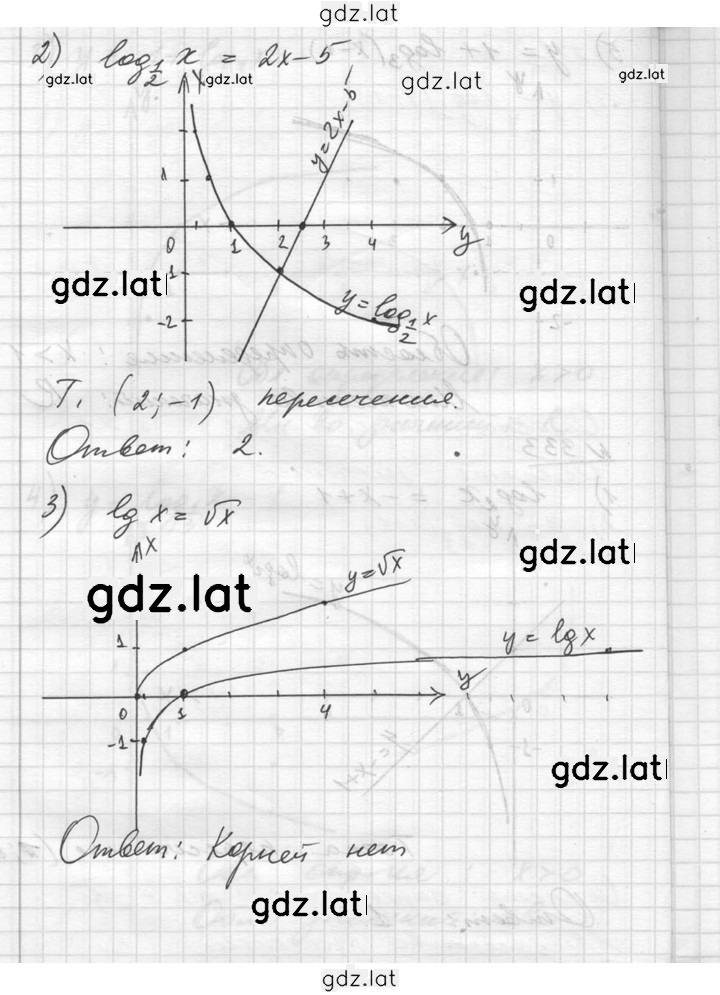 gdz.lat
2) log½ x = 2x-5
gdz.lat
gdz.lat
gdz.lat
y=2x-6
1
0 1 2 3 4 y
-1
gdz.lat
gdz.lat
-2
y=log½ x
Т. (2;-1) пересечения.
Ответ: 2.
3) lg x = √x
x
gdz.lat
gdz.lat
y=√x
1
y = lg x
y
0 1 4
-1
gdz.lat
Ответ: Корней нет
gdz.lat
gdz.lat